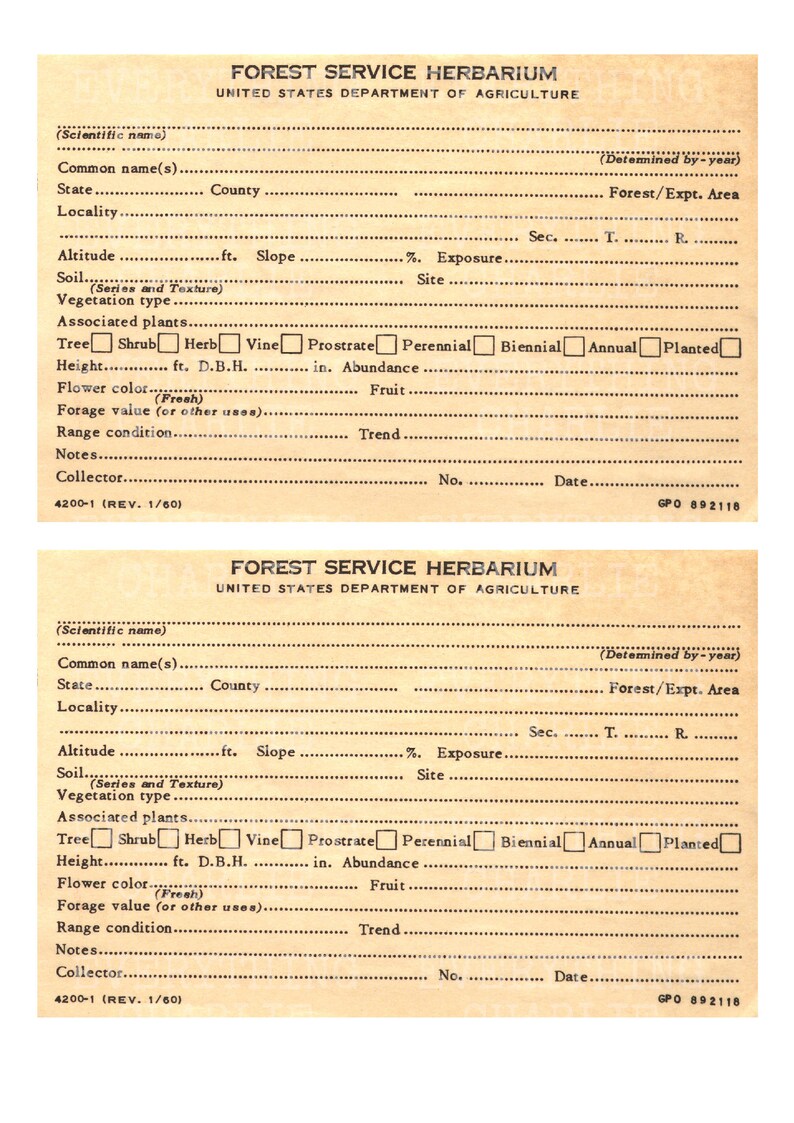 FOREST SERVICE HERBARIUM
UNITED STATES DEPARTMENT OF AGRICULTURE
(Scientific name)
(Determined by-year)
Common name(s)
State County Forest/Expt. Area
Locality
Sec. T. R.
Altitude ft. Slope %. Exposure
Soil Site
(Series and Texture)
Vegetation type
Associated plants
Tree Shrub Herb Vine Prostrate Perennial Biennial Annual Planted
Height ft. D.B.H. in. Abundance
Flower color Fruit
(Fresh)
Forage value (or other uses)
Range condition Trend
Notes
Collector No. Date
4200-1 (REV. 1/60) GPO 892118
FOREST SERVICE HERBARIUM
UNITED STATES DEPARTMENT OF AGRICULTURE
(Scientific name)
(Determined by-year)
Common name(s)
State County Forest/Expt. Area
Locality
Sec. T. R.
Altitude ft. Slope %. Exposure
Soil Site
(Series and Texture)
Vegetation type
Associated plants
Tree Shrub Herb Vine Prostrate Perennial Biennial Annual Planted
Height ft. D.B.H. in. Abundance
Flower color Fruit
(Fresh)
Forage value (or other uses)
Range condition Trend
Notes
Collector No. Date
4200-1 (REV. 1/60) GPO 892118